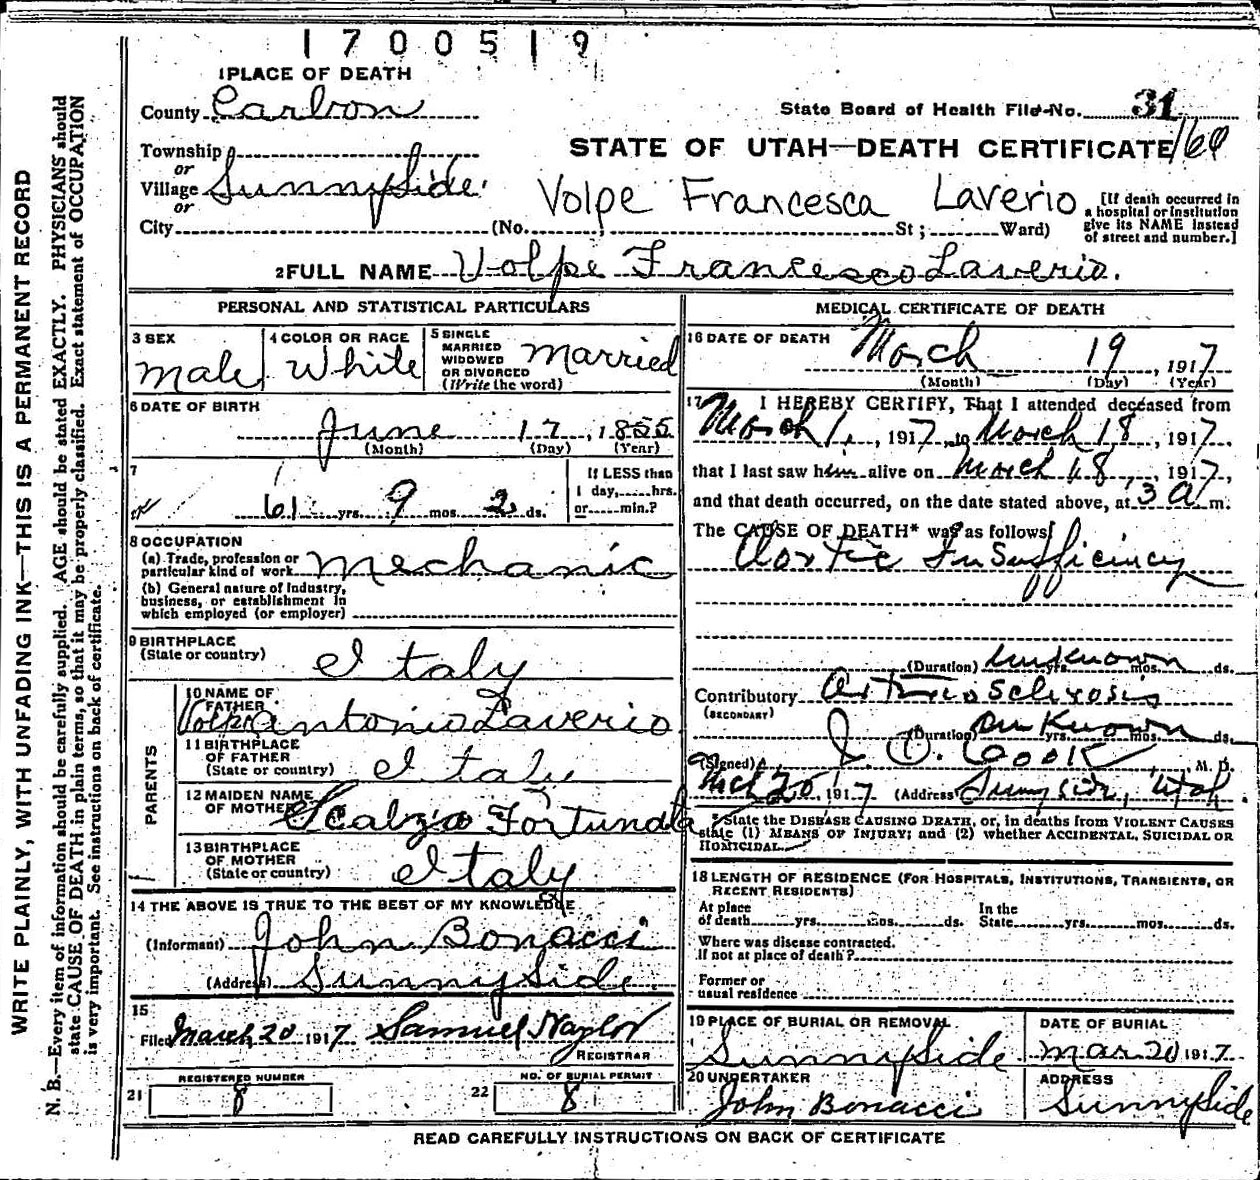 1700519
1 PLACE OF DEATH
County Carbon
State Board of Health File No. 31
Township
or
Village SunnySide
or
City
STATE OF UTAH—DEATH CERTIFICATE 160
Volpe Francesca Laverio
(No. St; Ward)
[If death occurred in
a hospital or institution
give its NAME instead
of street and number.]
2 FULL NAME Volpe Francesco Laverio.
PERSONAL AND STATISTICAL PARTICULARS
3 SEX
Male
4 COLOR OR RACE
White
5 SINGLE
MARRIED
WIDOWED
OR DIVORCED
(Write the word)
Married
6 DATE OF BIRTH
June 17, 1855
(Month) (Day) (Year)
7
61 yrs. 9 mos. 2 ds.
If LESS than
1 day, hrs.
or min.?
8 OCCUPATION
(a) Trade, profession or
particular kind of work mechanic
(b) General nature of Industry,
business, or establishment in
which employed (or employer)
9 BIRTHPLACE
(State or country)
Italy
PARENTS
10 NAME OF
FATHER
Volpe Antonio Laverio
11 BIRTHPLACE
OF FATHER
(State or country) Italy
12 MAIDEN NAME
OF MOTHER Scalzo Fortunata
13 BIRTHPLACE
OF MOTHER
(State or country) Italy
14 THE ABOVE IS TRUE TO THE BEST OF MY KNOWLEDGE
(Informant) John Bonacci
(Address) SunnySide.
15
Filed March 20 1917 Samuel Naylor
REGISTRAR
REGISTERED NUMBER
21 8
NO. OF BURIAL PERMIT
22 8
MEDICAL CERTIFICATE OF DEATH
16 DATE OF DEATH
March 19, 1917
(Month) (Day) (Year)
17 I HEREBY CERTIFY, That I attended deceased from
March 1, 1917, to March 18, 1917,
that I last saw him alive on March 18, 1917,
and that death occurred, on the date stated above, at 3 a m.
The CAUSE OF DEATH* was as follows:
Aortic Insufficiency
(Duration) Unknown yrs. mos. ds.
Contributory Arteriosclerosis
(SECONDARY)
(Duration) Unknown yrs. mos. ds.
(Signed) J. D. Cook, M. D.
Mch 20, 1917 (Address) Sunnyside, Utah
* State the DISEASE CAUSING DEATH, or, in deaths from VIOLENT CAUSES
state (1) MEANS OF INJURY; and (2) whether ACCIDENTAL, SUICIDAL OR
HOMICIDAL.
18 LENGTH OF RESIDENCE (FOR HOSPITALS, INSTITUTIONS, TRANSIENTS, OR
RECENT RESIDENTS)
At place
of death yrs. mos. ds.
In the
State yrs. mos. ds.
Where was disease contracted.
If not at place of death?
Former or
usual residence
19 PLACE OF BURIAL OR REMOVAL
SunnySide
DATE OF BURIAL
Mar. 20 1917
20 UNDERTAKER
John Bonacci
ADDRESS
SunnySide
READ CAREFULLY INSTRUCTIONS ON BACK OF CERTIFICATE
WRITE PLAINLY, WITH UNFADING INK—THIS IS A PERMANENT RECORD
N. B.—Every item of information should be carefully supplied. AGE should be stated EXACTLY. PHYSICIANS should
state CAUSE OF DEATH in plain terms, so that it may be properly classified. Exact statement of OCCUPATION
is very important. See instructions on back of certificate.